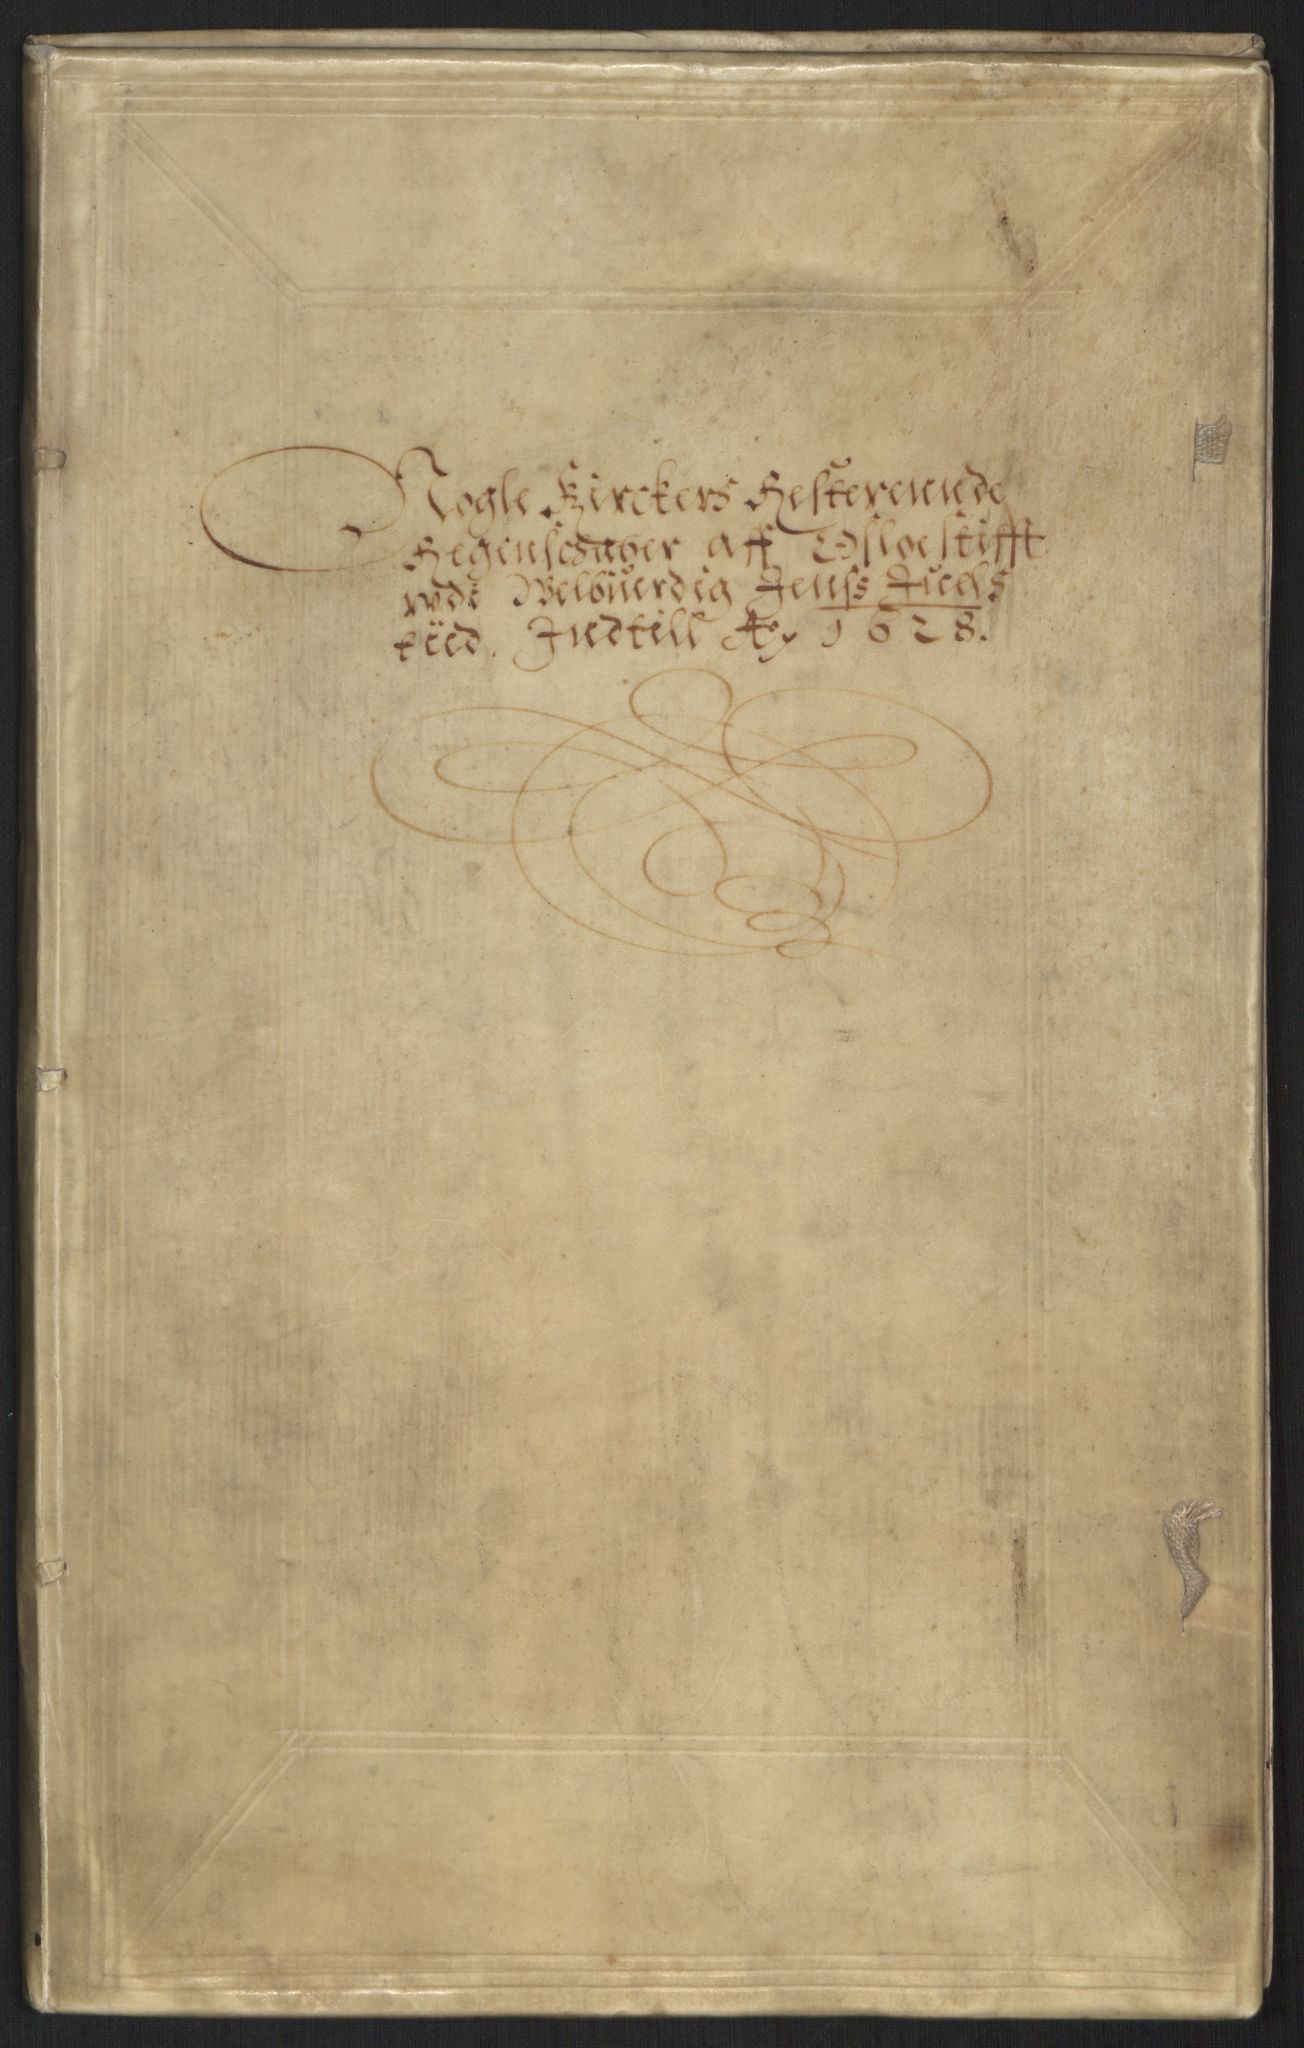 Nogle Kirckers Resterennde
Regenschaber aff Opsloestifft
wdi Welbiuerdig Jenss Juels
tiid. Indtill Ao. 1628.